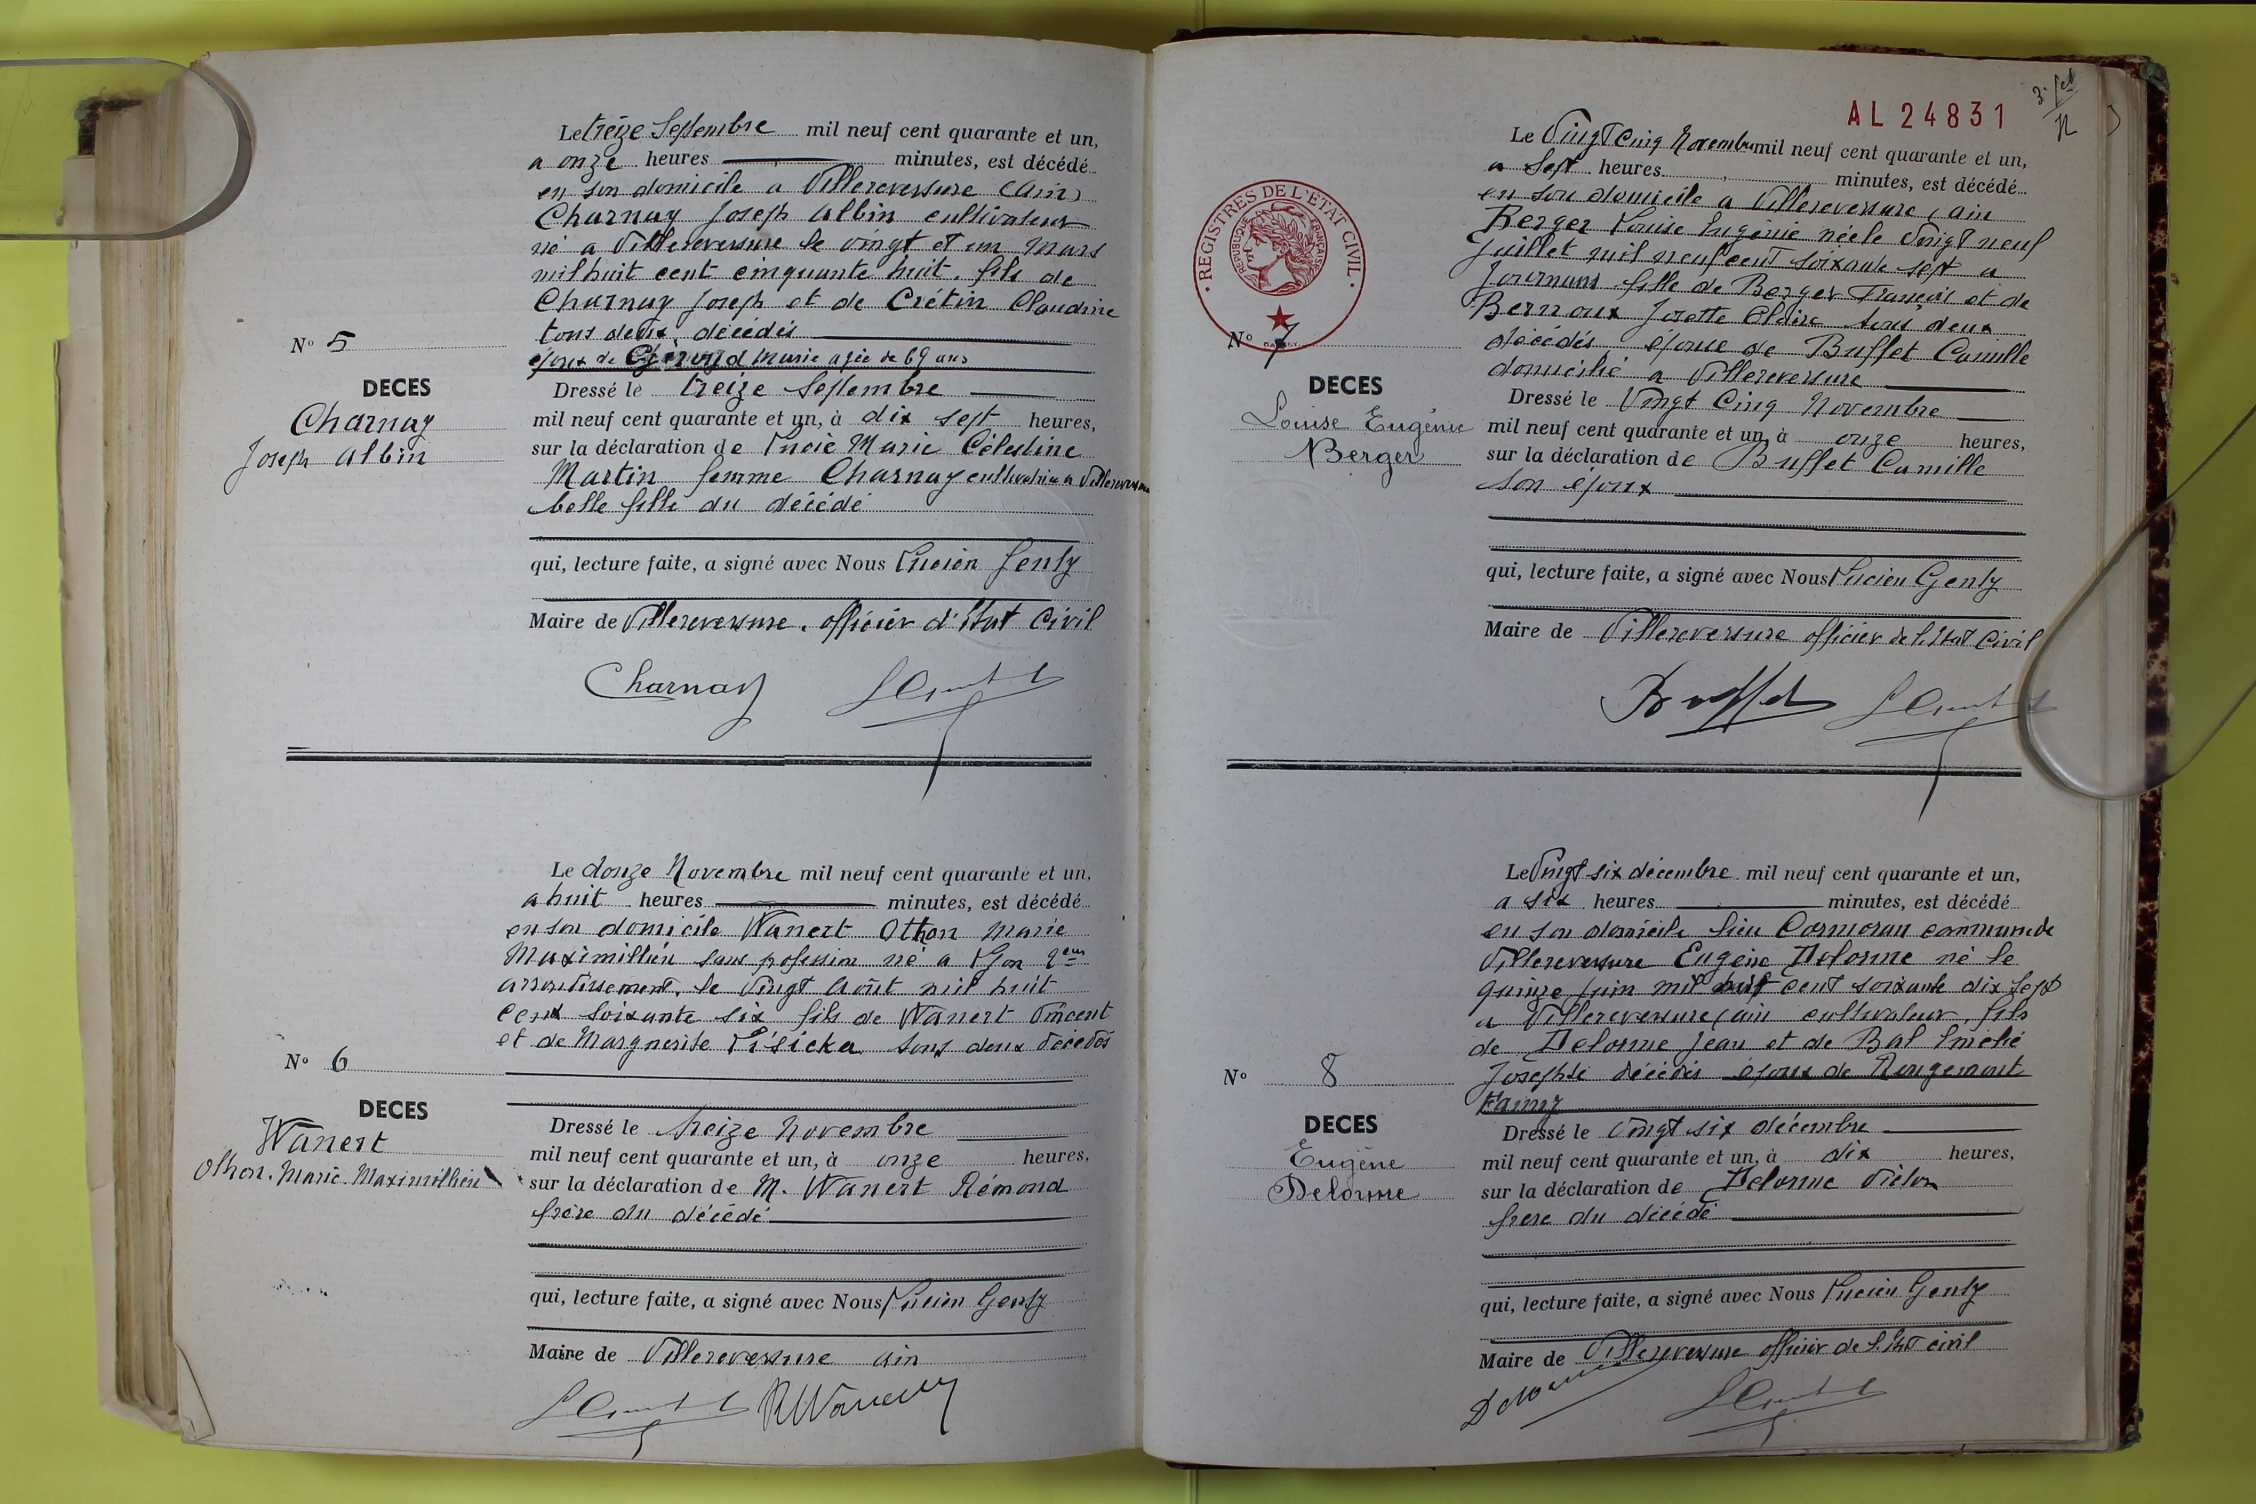 Le treize Septembre mil neuf cent quarante et un,
a onze heures minutes, est décédé
en son domicile a Villereversure (Ain)
Charnay Joseph Albin cultivateur
né a Villereversure le vingt et un Mars
mil huit cent cinquante huit. fils de
Charnay Joseph et de Crétin Claudine
tous deux décédés
époux de Marie agée de 69 ans
N° 5
DECES
Charnay
Joseph Albin
Dressé le treize Septembre
mil neuf cent quarante et un, à dix sept heures,
sur la déclaration de Lucie Marie Célestine
Martin femme Charnay cultivatrice a Villereversure
belle fille du décédé
qui, lecture faite, a signé avec Nous Lucien Genty
Maire de Villereversure. officier d'Etat Civil
Charnay
Le douze Novembre mil neuf cent quarante et un,
a huit heures minutes, est décédé
en son domicile Wanert Othon Marie
Maximillien sans profession né a Lyon 2eme
arrondissement, le vingt Août mil huit
cent soixante six fils de Wanert Vincent
et de Marguerite Lisicka tous deux décédés
N° 6
DECES
Wanert
Othon. Marie. Maximillien
Dressé le treize Novembre
mil neuf cent quarante et un, à onze heures,
sur la déclaration de M. Wanert Rémond
frère du décédé
qui, lecture faite, a signé avec Nous Lucien Genty
Maire de Villereversure ain
RWanert
AL 24831
3e fel
12
Le Vingt Cinq Novembre mil neuf cent quarante et un,
a Sept heures minutes, est décédé
en son domicile a Villereversure, ain
Berger Louise Eugénie née le Vingt neuf
Juillet mil neuf cent soixante sept a
Journans fille de Berger François et de
Bernoux Josette Claire tous deux
décédés épouse de Buffet Camille
domicilié a Villereversure
REGISTRES DE L'ETAT CIVIL
REPUBLIQUE FRANÇAISE
N° 7
DECES
Louise Eugénie
Berger
Dressé le Vingt Cinq Novembre
mil neuf cent quarante et un, à onze heures,
sur la déclaration de Buffet Camille
son époux
qui, lecture faite, a signé avec Nous Lucien Genty
Maire de Villereversure officier de l'Etat Civil
Buffet
Le Vingt six décembre mil neuf cent quarante et un,
a six heures minutes, est décédé
en son domicile lieu Cormoran commune de
Villereversure Eugène Delorme né le
quinze juin mil huit cent soixante dix sept
a Villereversure (ain cultivateur, fils
de Delorme Jean et de Bal Emélie
décédés époux de Rougemont
Fanny
N° 8
DECES
Eugène
Delorme
Dressé le Vingt six décembre
mil neuf cent quarante et un, à dix heures,
sur la déclaration de Delorme Victor
frère du décédé
qui, lecture faite, a signé avec Nous Lucien Genty
Maire de Villereversure officier de l'Etat civil
Delorme